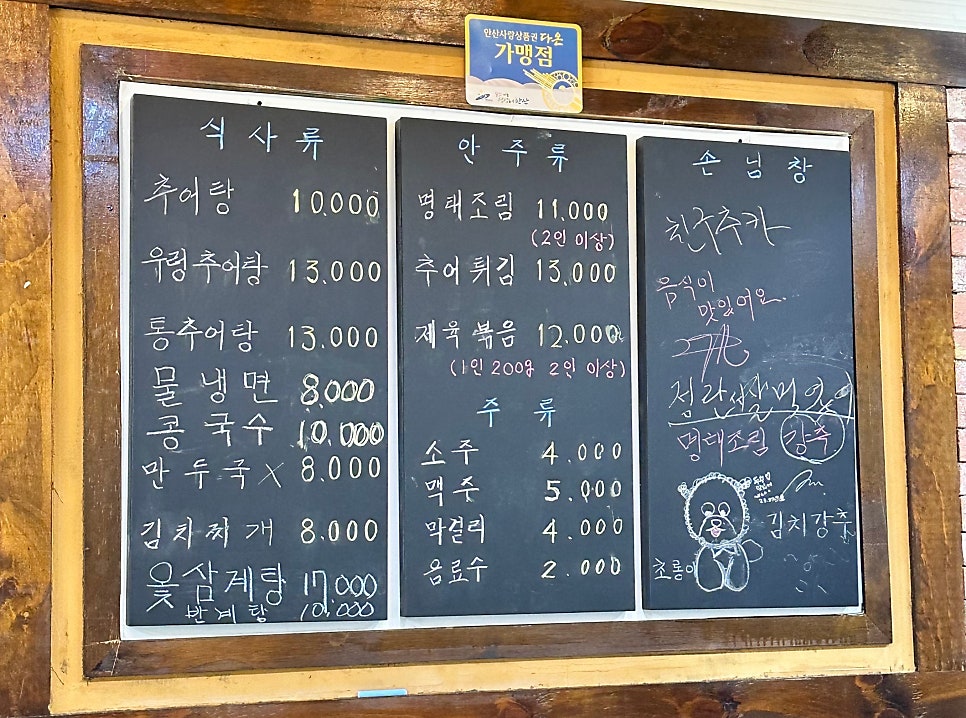 안산사랑상품권 다온
가맹점
식사류
추어탕 10.000
우렁추어탕 13.000
통추어탕 13.000
물냉면 8.000
콩국수 10.000
만두국 X 8.000
김치찌개 8.000
옻삼계탕 17.000
반계탕 10.000
안주류
명태조림 11.000
(2인 이상)
추어튀김 13.000
제육볶음 12.000
(1인 200g 2인 이상)
주류
소주 4.000
맥주 5.000
막걸리 4.000
음료수 2.000
손님창
친구추카
음식이
맛있어요
명태조림 강추
김치강추
초롱이